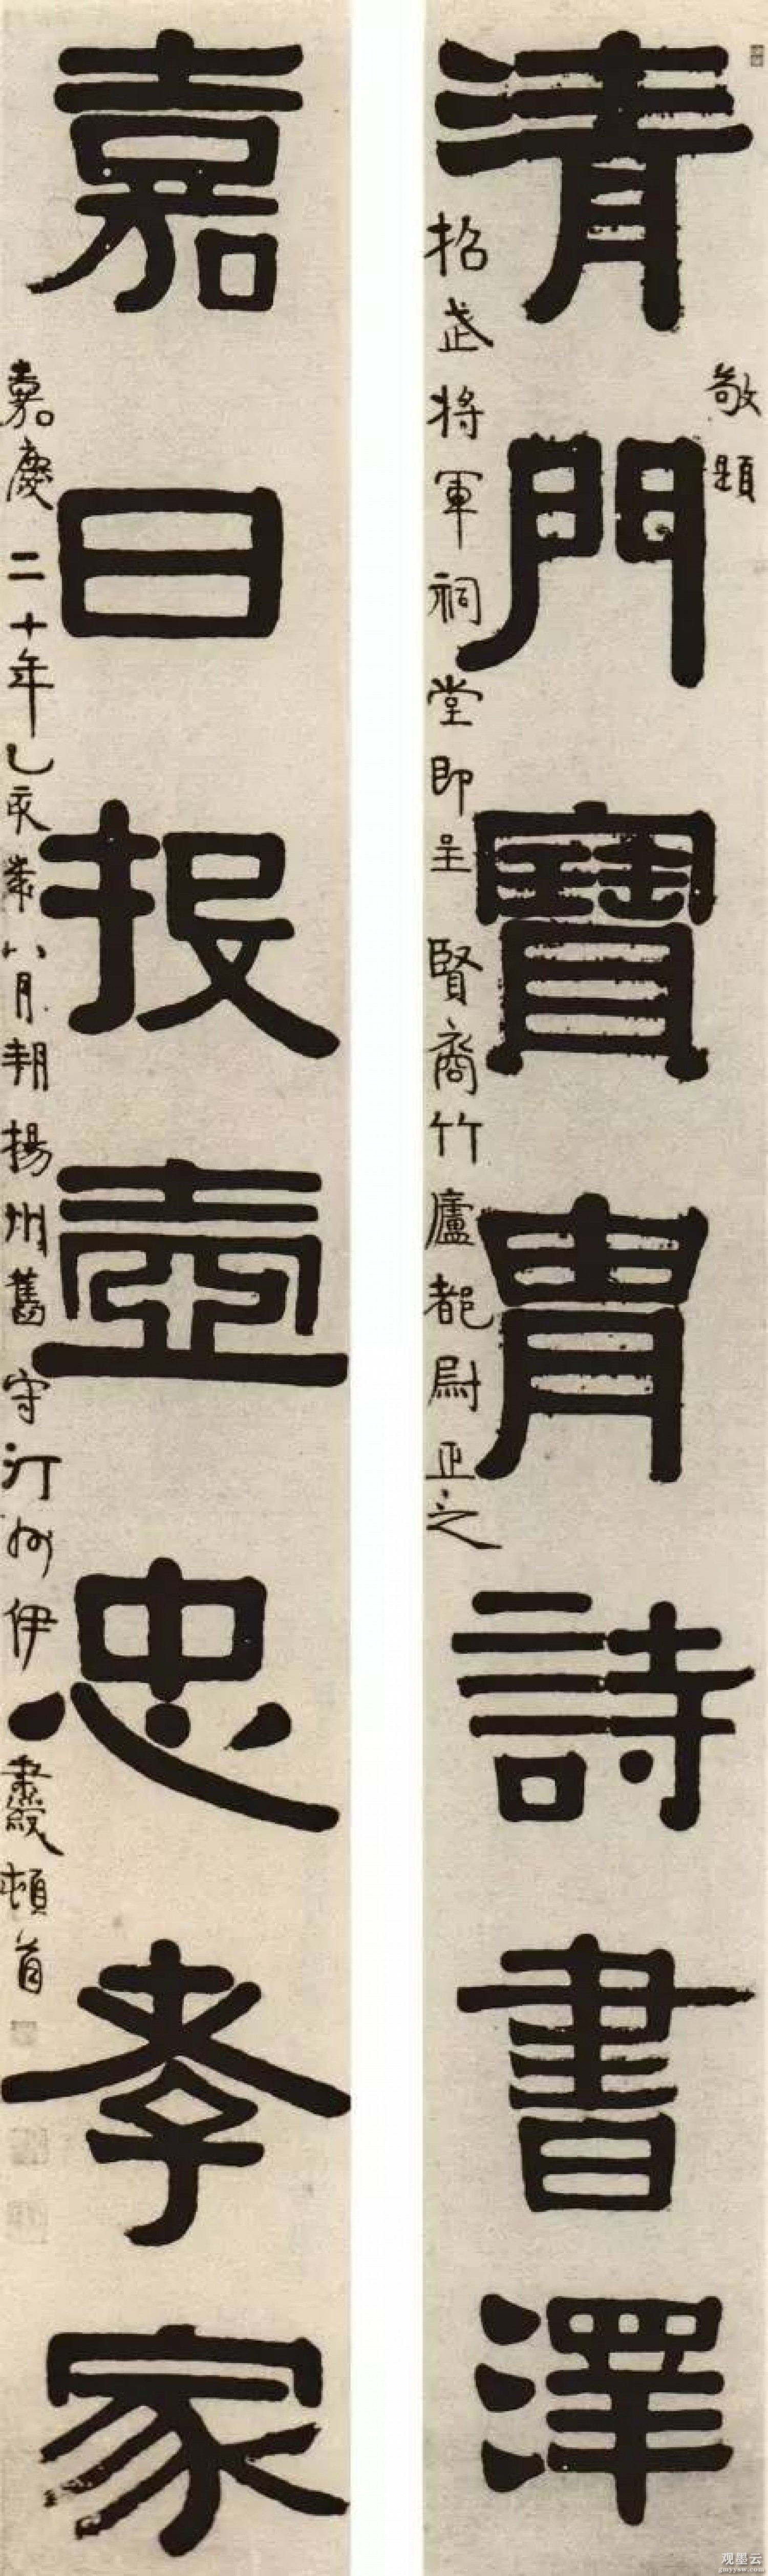 清門寶胄詩書澤
敬題
招武將軍祠堂即呈
賢裔竹廬都尉正之
嘉日投壺忠孝家
嘉慶二十年乙亥歲八月朔揚州舊守汀州伊秉綬頓首
观墨云